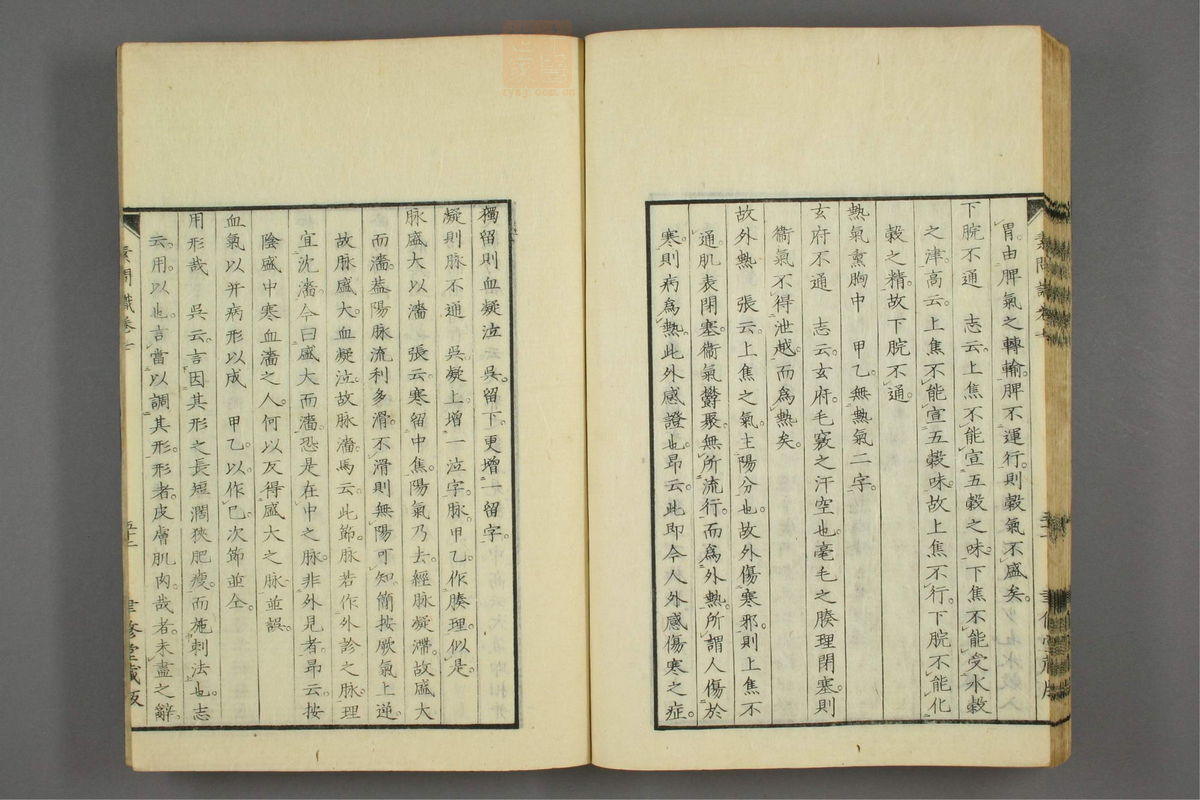 胃由脾氣之轉輸脾不運行則穀氣不盛矣
下脘不通 志云上焦不能宣五穀之味下焦不能受水穀
之津高云上焦不能宣五穀味故上焦不行下脘不能化
穀之精故下脘不通
熱氣熏胸中 甲乙無熱氣二字
玄府不通 志云玄府毛竅之汗空也毫毛之腠理閉塞則
衞氣不得泄越而爲熱矣
故外熱 張云上焦之氣主陽分也故外傷寒邪則上焦不
通肌表閉塞衞氣鬱聚無所流行而爲外熱所謂人傷於
寒則病爲熱此外感證也昂云此即今人外感傷寒之症
獨留則血凝泣 吳留下更增一留字
凝則脉不通 吳凝上增一泣字脉甲乙作腠理似是
脉盛大以濇 張云寒留中焦陽氣乃去經脉凝滯故盛大
而濇葢陽脉流利多滑不滑則無陽可知簡按厥氣上逆
故脉盛大血凝泣故脉濇馬云此節脉若作外診之脉理
宜沈濇今曰盛大而濇恐是在中之脉非外見者昂云按
陰盛中寒血濇之人何以反得盛大之脉並誤
血氣以并病形以成 甲乙以作巳次節並仝
用形哉 吳云言因其形之長短濶狹肥瘦而施刺法也志
云用以也言當以調其形形者皮膚肌肉哉者未盡之辭
素問識卷七
五十二
聿修堂藏版